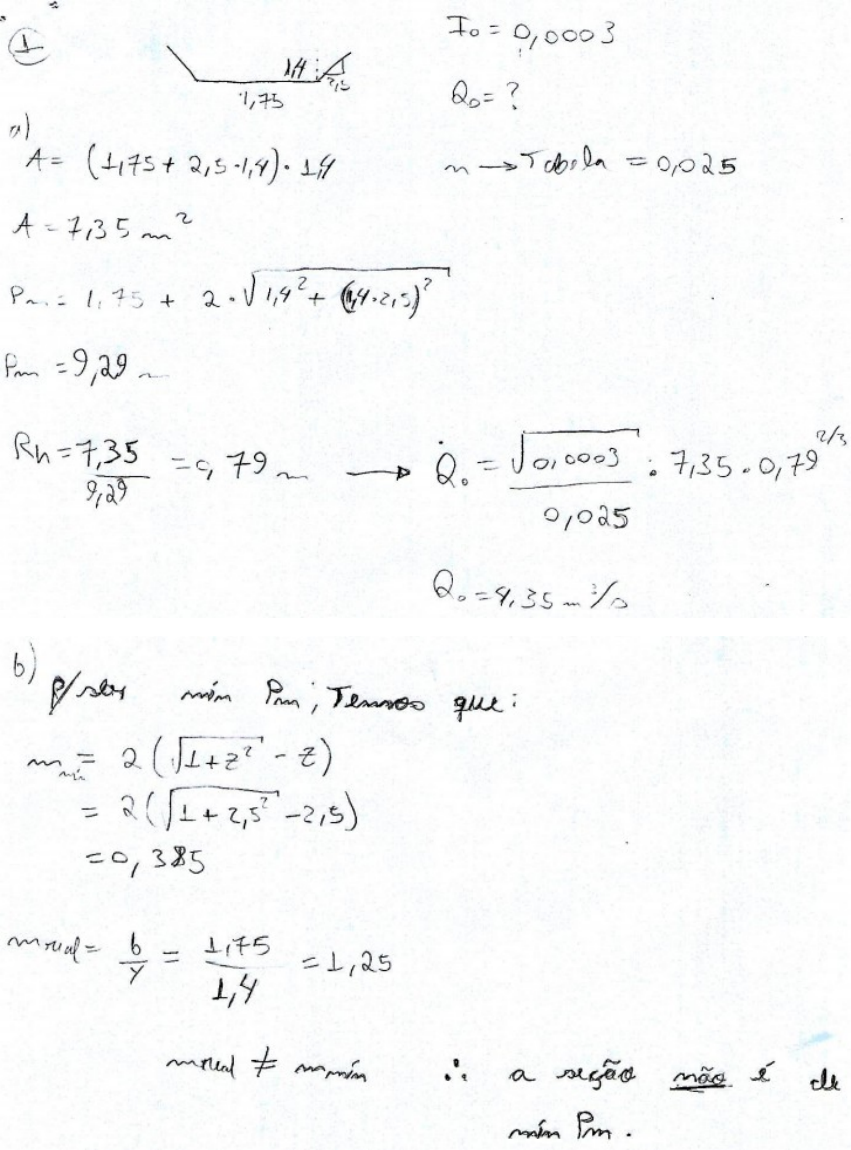 1
I₀ = 0,0003
1,4
2,5
1,75
Q₀ = ?
a)
A = (1,75 + 2,5·1,4)·1,4
n → Tabela = 0,025
A = 7,35 m²
Pm = 1,75 + 2·√(1,4² + (1,4·2,5)²)
Pm = 9,29 m
Rh = 7,35 / 9,29 = 0,79 m → Q₀ = √0,0003 / 0,025 · 7,35 · 0,79^2/3
Q₀ = 4,35 m³/s
b)
p/ ser mín Pm, Temos que:
m mín = 2(√(1+z²) - z)
= 2(√(1+2,5²) - 2,5)
= 0,385
m real = b/y = 1,75 / 1,4 = 1,25
m real ≠ m mín ∴ a seção não é de
mín Pm.